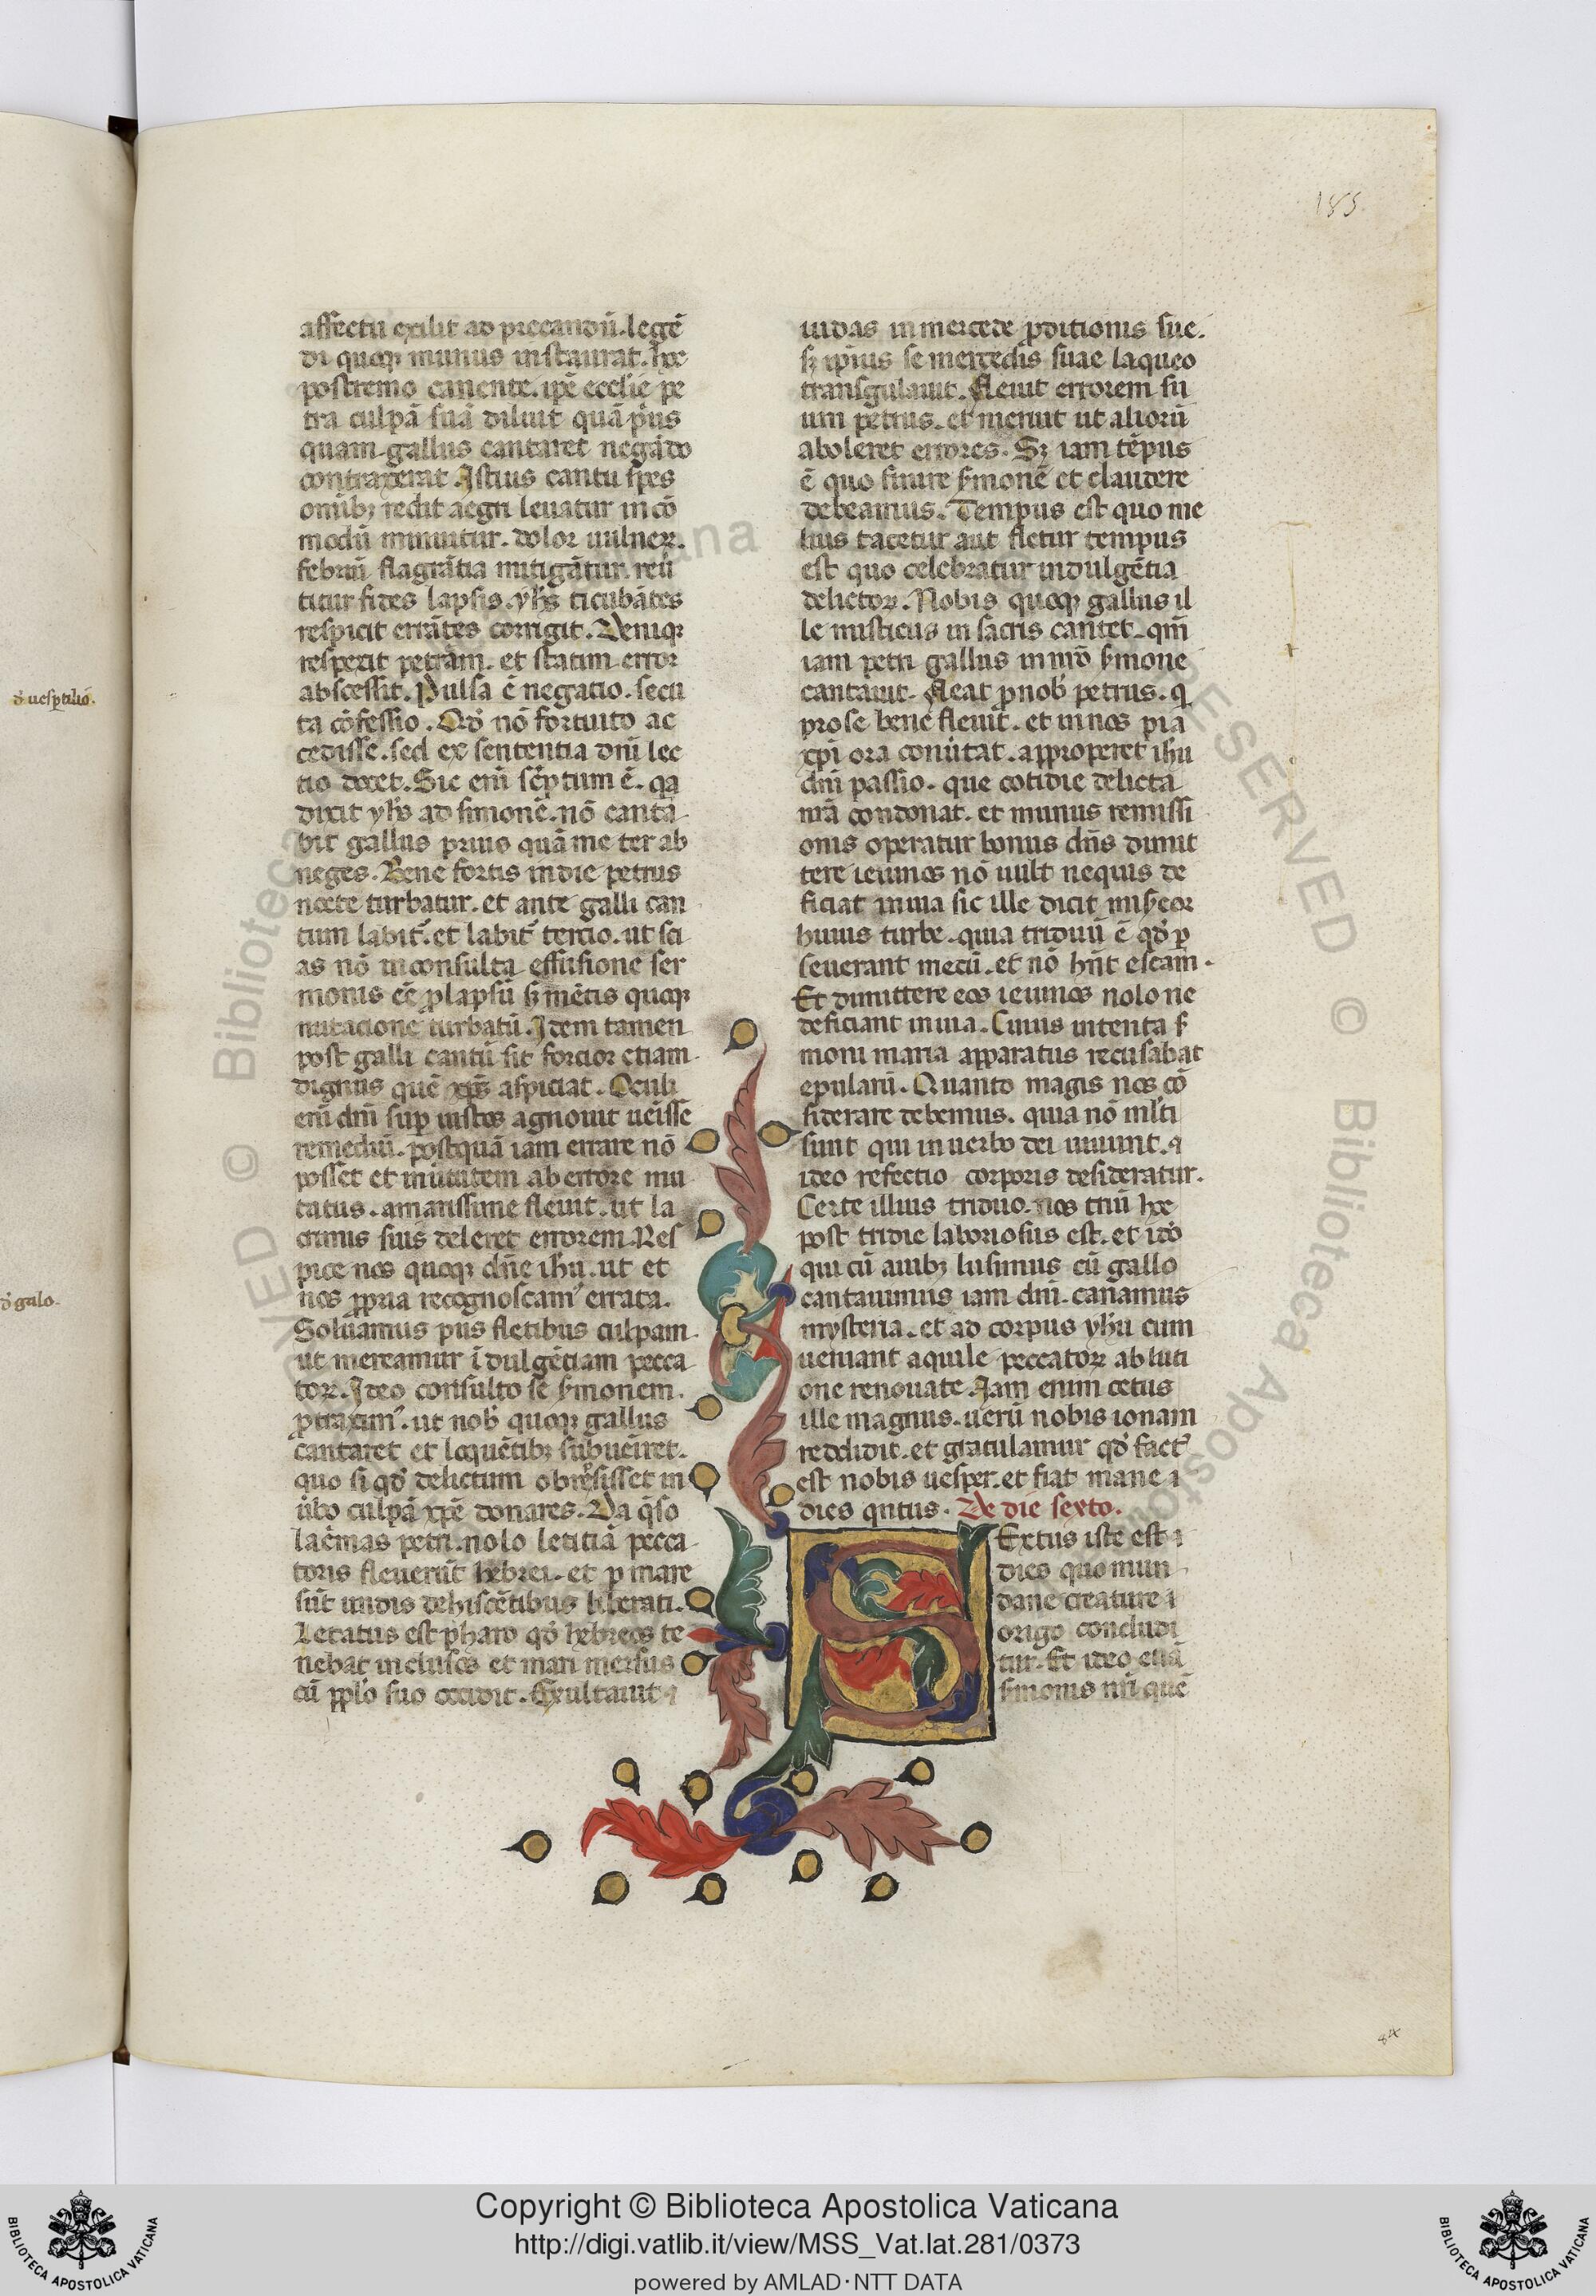 185.
affectu exilit ad precandū. legē
di quoqꝫ munus instaurat. hoc
postremo canente. ipē ecclīe pe
tra culpā suā diluit quā pius
quam gallus cantaret negādo
contraxerat. Istius cantu spes
omībꝫ redit aegri leuatur incō
modū minuitur. dolor uulneꝝ.
febriū flagrātia mitigātur. reū
titur fides lapsis. yħs ticubātes
respicit errātes corrigit. Deniqꝫ
respexit petram. et statim error
abscessit. Pulsa ē negatio. secu
ta cōfessio. Qđ nō fortuito ac
cedisse. sed ex sententia dn̄i lec
tio docet. Sic eni scp̄tum ē. qa
dixit yħs ad simonē. nō cantā
bit gallus prius quā me ter ab
neges. Bene fortis in die petrus
nocte turbatur. et ante galli can
tum labit᷑. et labit᷑ tercio. ut sci
as nō inconsulta effusione ser
monis eē ꝓlapsū sꝫ mētis quoqꝫ
nutacione turbatū. Idem tamen
post galli cantū fit forcior etiam
dignus quē xp̄s aspiciat. Oculi
eni dn̄i sup iustos agnouit ueisse
remediū. postquā iam errare nō
posset et in uirtutem ab errore mu
tatus. amarissime fleuit. ut la
crimis suis deleret errorem. Res
pice nos quoqꝫ dn̄e ihu. ut et
nos ꝓpria recognoscam᷑ errata.
Soluamus piis fletibus culpam
ut mereamur īdulgētiam pecca
toꝝ. Ideo consulto se s̄monem
ꝓtraxim᷑. ut nob̄ quoqꝫ gallus
cantaret et loquētibꝫ subueīret.
quo si qđ delictum obresisset in
ūbo culpā xpē donares. Da q̄so
lac̄mas petri. nolo letitiā pecca
toris fleuerūt hebrei. et ꝑ mare
sūt undis dehiscētibus liberati.
Letatus est pharo qđ hebreos te
nebat inclusos et mari mersus
cū pplo suo occidit. Exultauit ⁊
iudas in mercede ꝑditionis sue.
sꝫ ipīus se mercedis suae laqueo
transgulauit. Fleuit errorem su
um petrus. et meruit ut aliorū
aboleret errores. Sꝫ iam tēpus
ē quo finire s̄monē et claudere
debeamus. Tempus est quo me
lius tacetur aut fletur tempus
est quo celebratur indulgētia
delictoꝝ. Nobis quoqꝫ gallus il
le misticus in sacris cantet. qm̄
iam petri gallus in nrō s̄mone
cantauit. Fleat ꝓ nob̄ petrus. q
pro se bene fleuit. et in nos pia
xp̄i ora conūtat. approperet ihu
dn̄i passio. que cotidie delicta
nrā condonat. et munus remissi
onis operatur bonus dn̄s dimit
tere ieiunos nō uult nequis de
ficiat in uia sic ille dicit mis̄eor
huius turbe. quia triduū ē qđ ꝑ
seuerant mecū. et nō hn̄t escam.
Et dimittere eos ieiunos nolo ne
deficiant in uia. Cuius intenta s̄
moni maria apparatus recusabat
epulari. Quanto magis nos cō
siderare debemus. quia nō ml̄ti
sunt qui in uerbo dei uiuunt. ⁊
ideo refectio corporis desideratur.
Certe illius triduo. nos triū hoc
post tridie laboriosus est. et ideo
qui cū auibꝫ lusimus cū gallo
cantauimus iam dn̄i. canamus
mysteria. et ad corpus yħu cum
ueniant aquile peccatoꝝ abluti
one renouate. Iam enim cetus
ille magnus. uerū nobis ionam
reddidit. et gratulamur qđ fact᷑
est nobis uesper. et fiat mane ⁊
dies qntus. De die sexto.
SExtus iste est ⁊
dies quo mun
dane creature ⁊
origo concludi
tur. Et ideo etiā
s̄monis nr̄i quē
84
đ uesꝑtiliō.
đ galo.
Copyright © Biblioteca Apostolica Vaticana
http://digi.vatlib.it/view/MSS_Vat.lat.281/0373
powered by AMLAD·NTT DATA
BIBLIOTECA APOSTOLICA VATICANA
BIBLIOTECA APOSTOLICA VATICANA